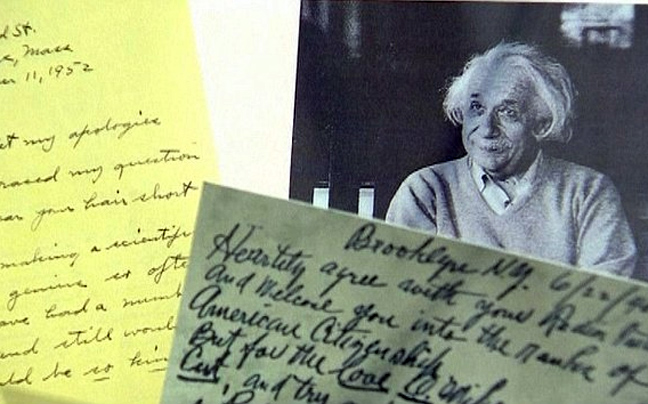 St.
Mass
11, 1952
my apologies
my question
your hair short
making a scientific
genius so ofte
have had a numb
and still woul
ld be so kin
Brooklyn N.Y. 6/22/40
Heartily agree with your Radio
and Welcome you into the ranks of
American Citizenship.
But for the love
Cut, and